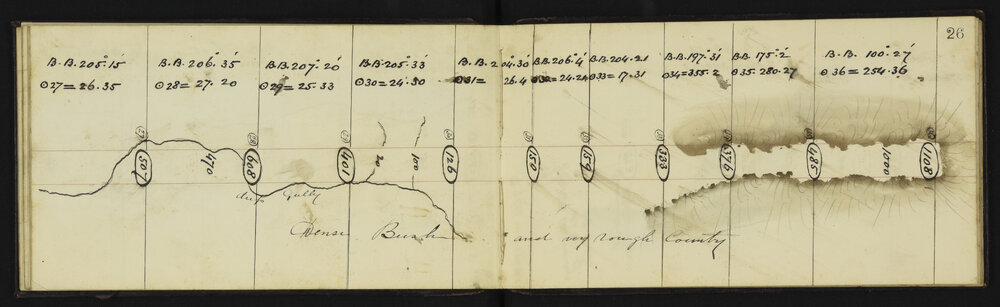 26
B.B. 205°.15' B.B. 206°. 35' B.B. 207°. 20' B.B. 205°. 33' B.B. 204.30 B.B. 206°.4' B.B. 204.21 B.B. 197°.31' B.B. 175°.2' B.B. 100°.27'
⊙27 = 26.35 ⊙28 = 27.20 ⊙29 = 25.33 ⊙30 = 24.30 ⊙31 = 26.4 24.24 ⊙33 = 17.31 ⊙34 = 355.2 ⊙35. 280.27 ⊙36 = 254.36
507 470 608 401 20 100 126 150 159 333 376 485 1000 1108
deep Gully
Dense Bush and very rough County